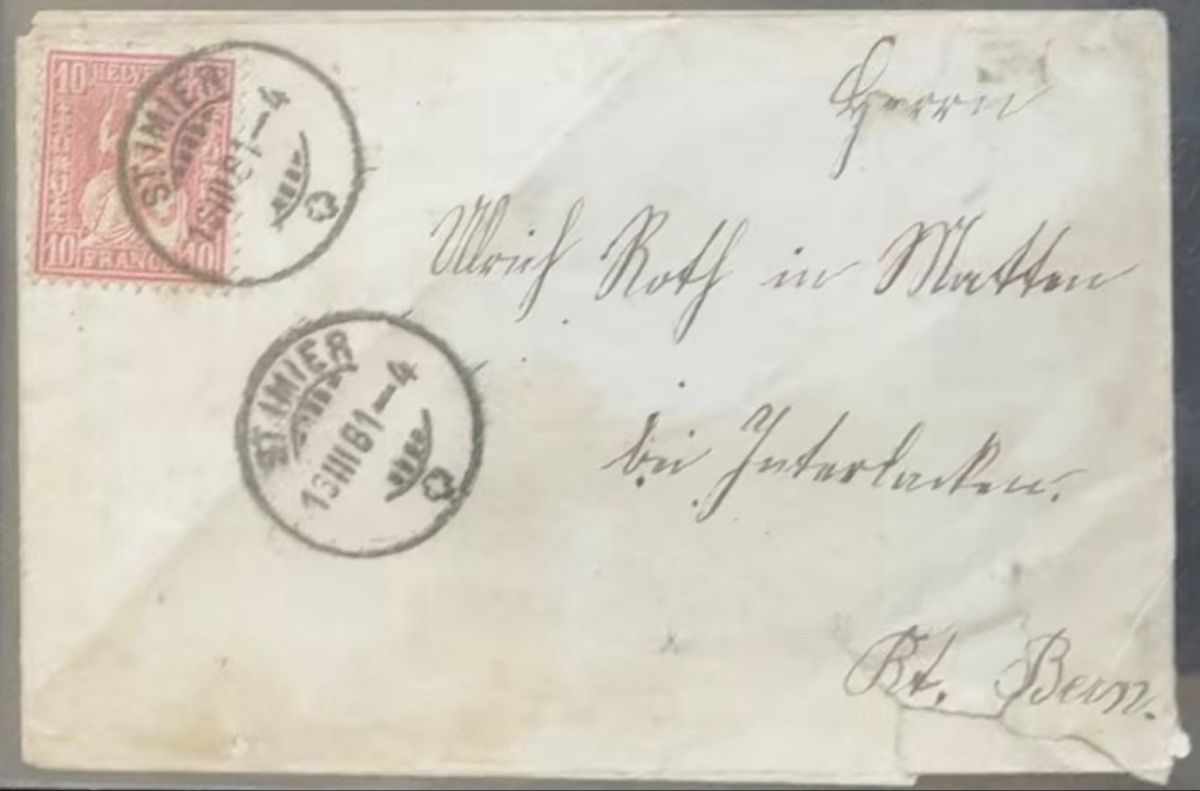 10 HELVE
10 FRANCO 10
ST. IMIER
13 III 81 — 4
Herrn
Ulrich Roth in Matten
ST. IMIER
13 III 81 — 4
bei Interlacken.
Kt. Bern.